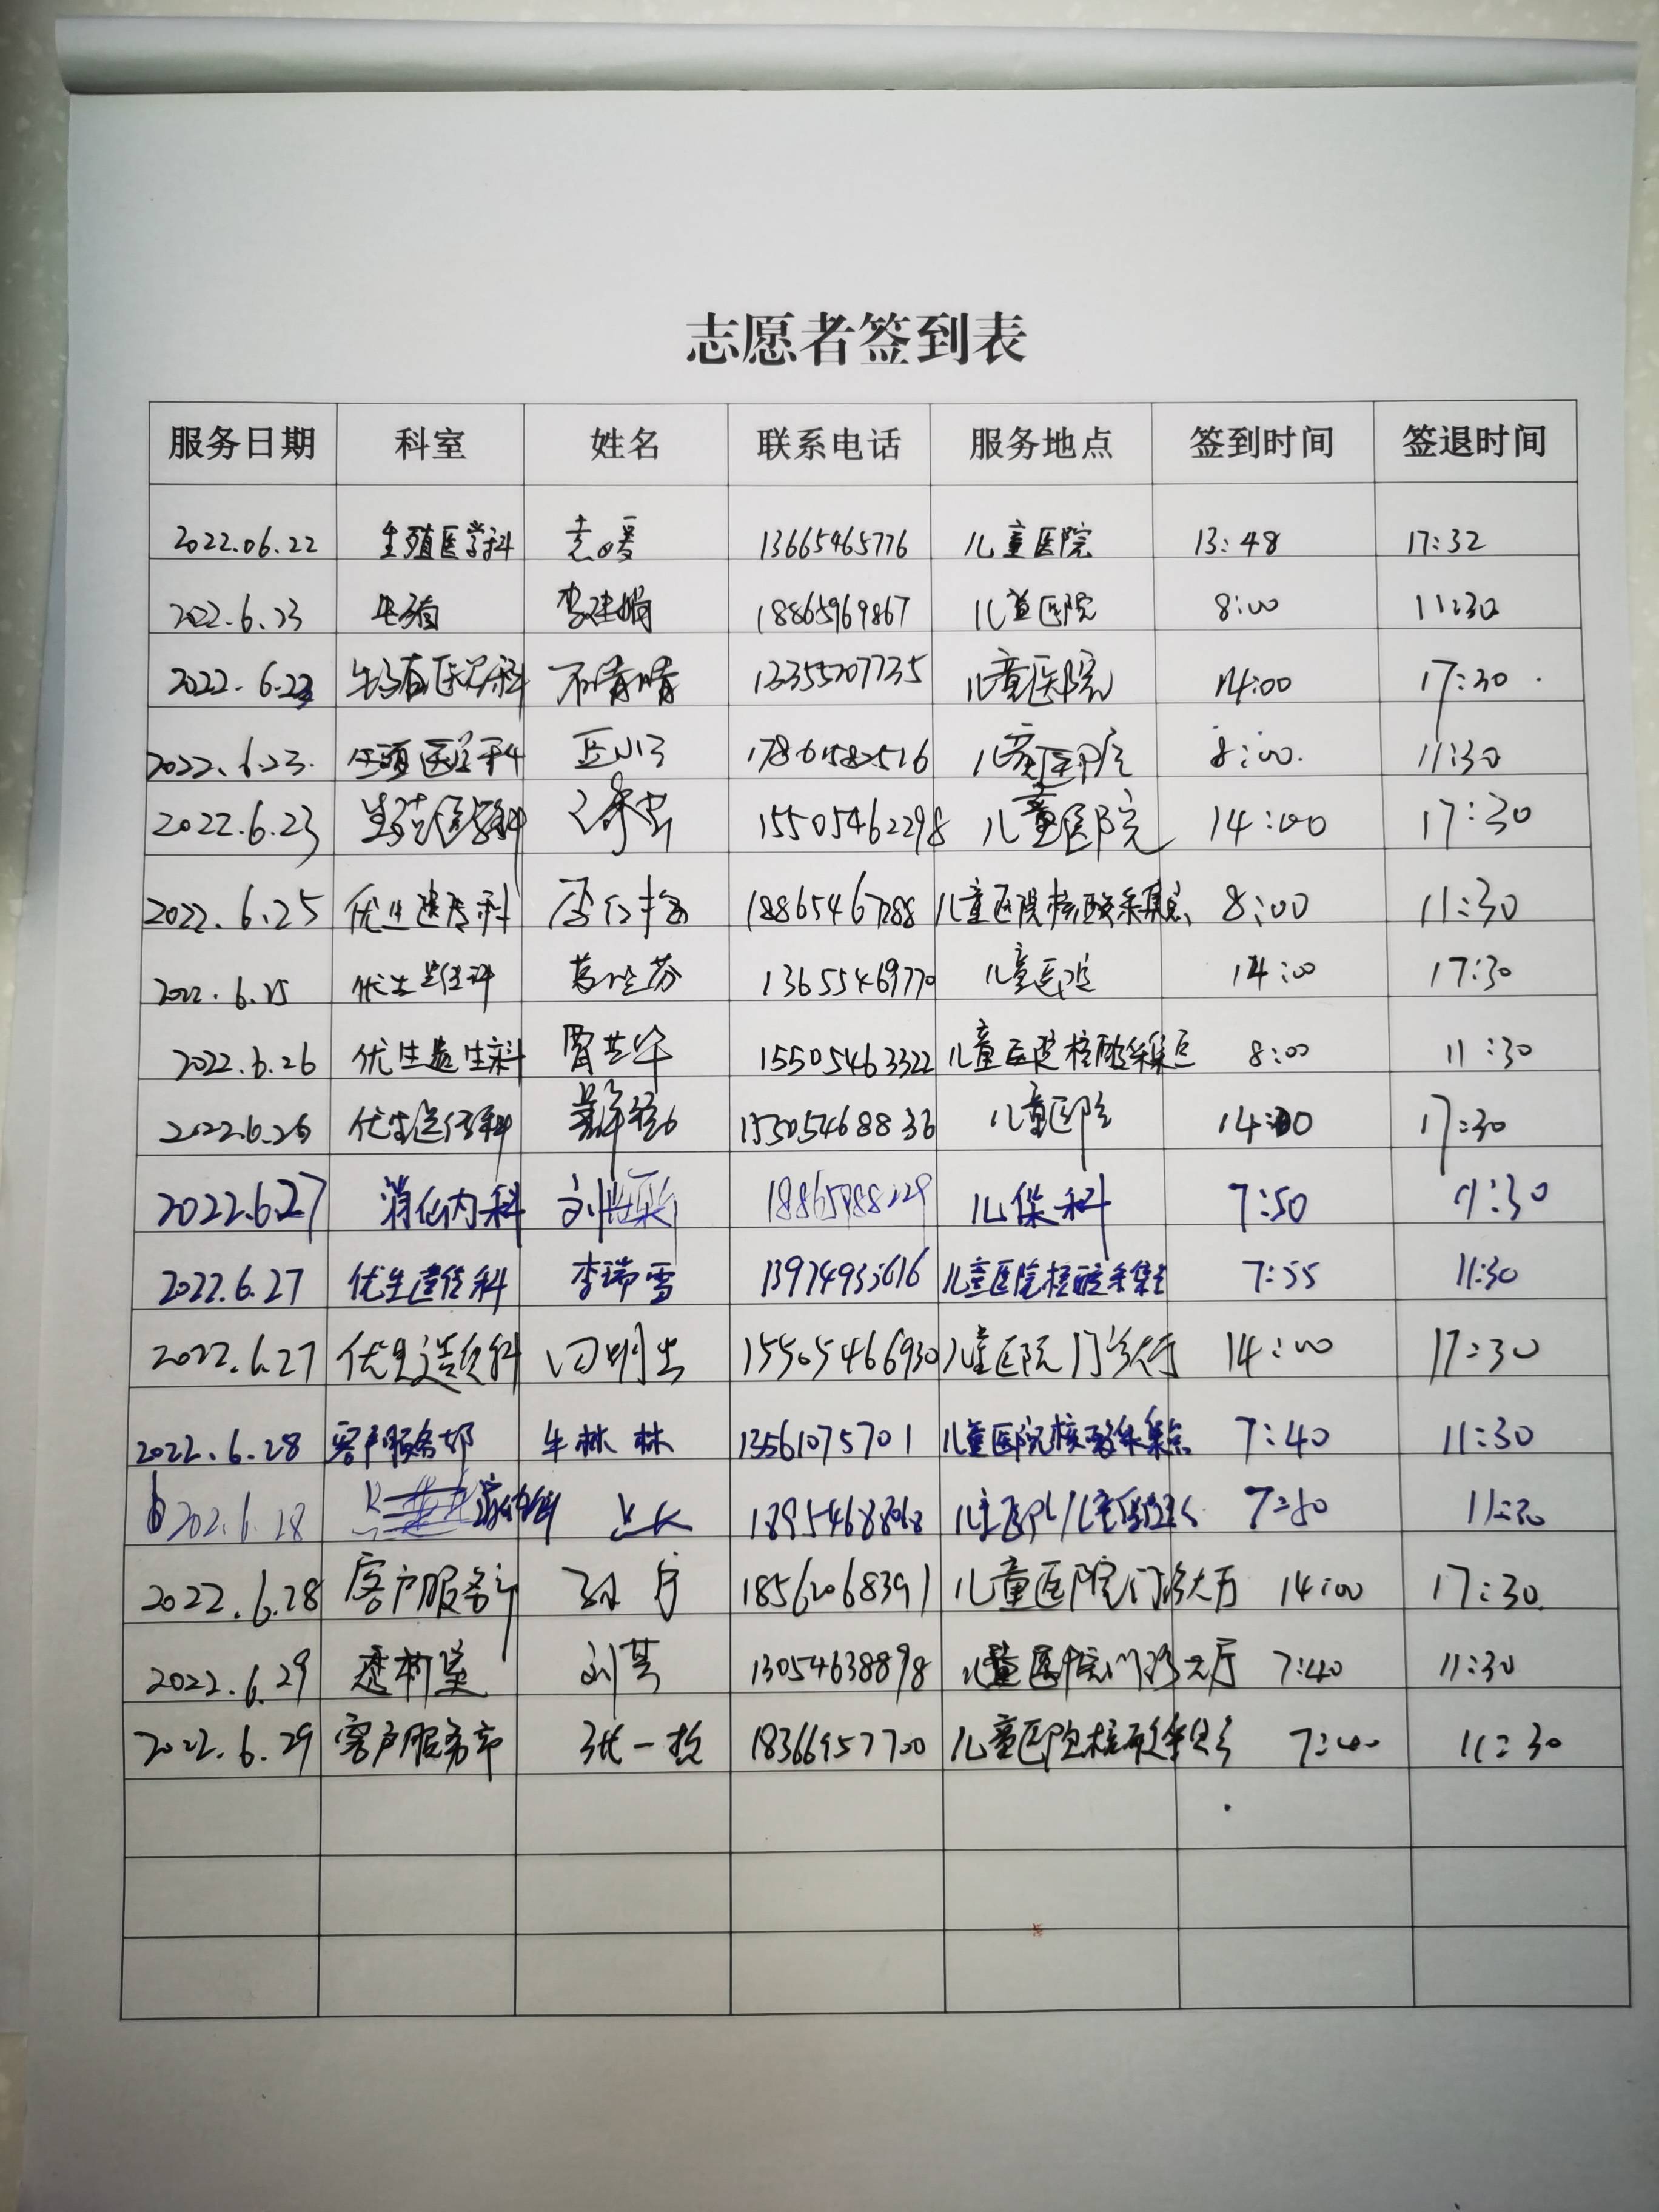 志愿者签到表
服务日期 科室 姓名 联系电话 服务地点 签到时间 签退时间
2022.06.22 生殖医学科 袁媛 13665465776 儿童医院 13:48 17:32
2022.6.23 生殖 李建娟 18865969867 儿童医院 8:00 11:30
2022.6.23 生殖医学科 石晴晴 13355207735 儿童医院 14:00 17:30
2022.6.23. 生殖医学科 17861582516 儿童医院 8:00. 11:30
2022.6.23 生殖医学科 15505462298 儿童医院 14:00 17:30
2022.6.25 优生遗传科 儿童医院核酸采集点 8:00 11:30
2022.6.25 优生遗传科 13655469770 儿童医院 14:00 17:30
2022.6.26 优生遗传科 15505463322 儿童医院核酸采集点 8:00 11:30
2022.6.26 优生遗传科 15505468836 儿童医院 14:00 17:30
2022.6.27 消化内科 儿保科 7:50 11:30
2022.6.27 优生遗传科 李瑞雪 儿童医院核酸采集点 7:55 11:30
2022.6.27 优生遗传科 15505466930 儿童医院门诊大厅 14:00 17:30
2022.6.28 客户服务部 牛林林 13561075701 儿童医院核酸采集点 7:40 11:30
2022.6.28 7:50 11:30
2022.6.28 客户服务部 18562068391 儿童医院门诊大厅 14:00 17:30.
2022.6.29 刘芹 13054638898 儿童医院门诊大厅 7:40 11:30
2022.6.29 客户服务部 张一 18366957700 儿童医院核酸采集点 7:00 11:30